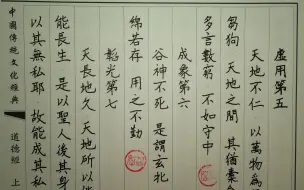 虛用第五
天地不仁 以萬物為
芻狗 天地之間 其猶
多言數窮 不如守中
成象第六
谷神不死 是謂玄牝
綿若存 用之不勤
韜光第七
天長地久 天地所以
能長生 是以聖人後其身
以其無私耶 故能成其私
中國傳統文化經典 道德經 上